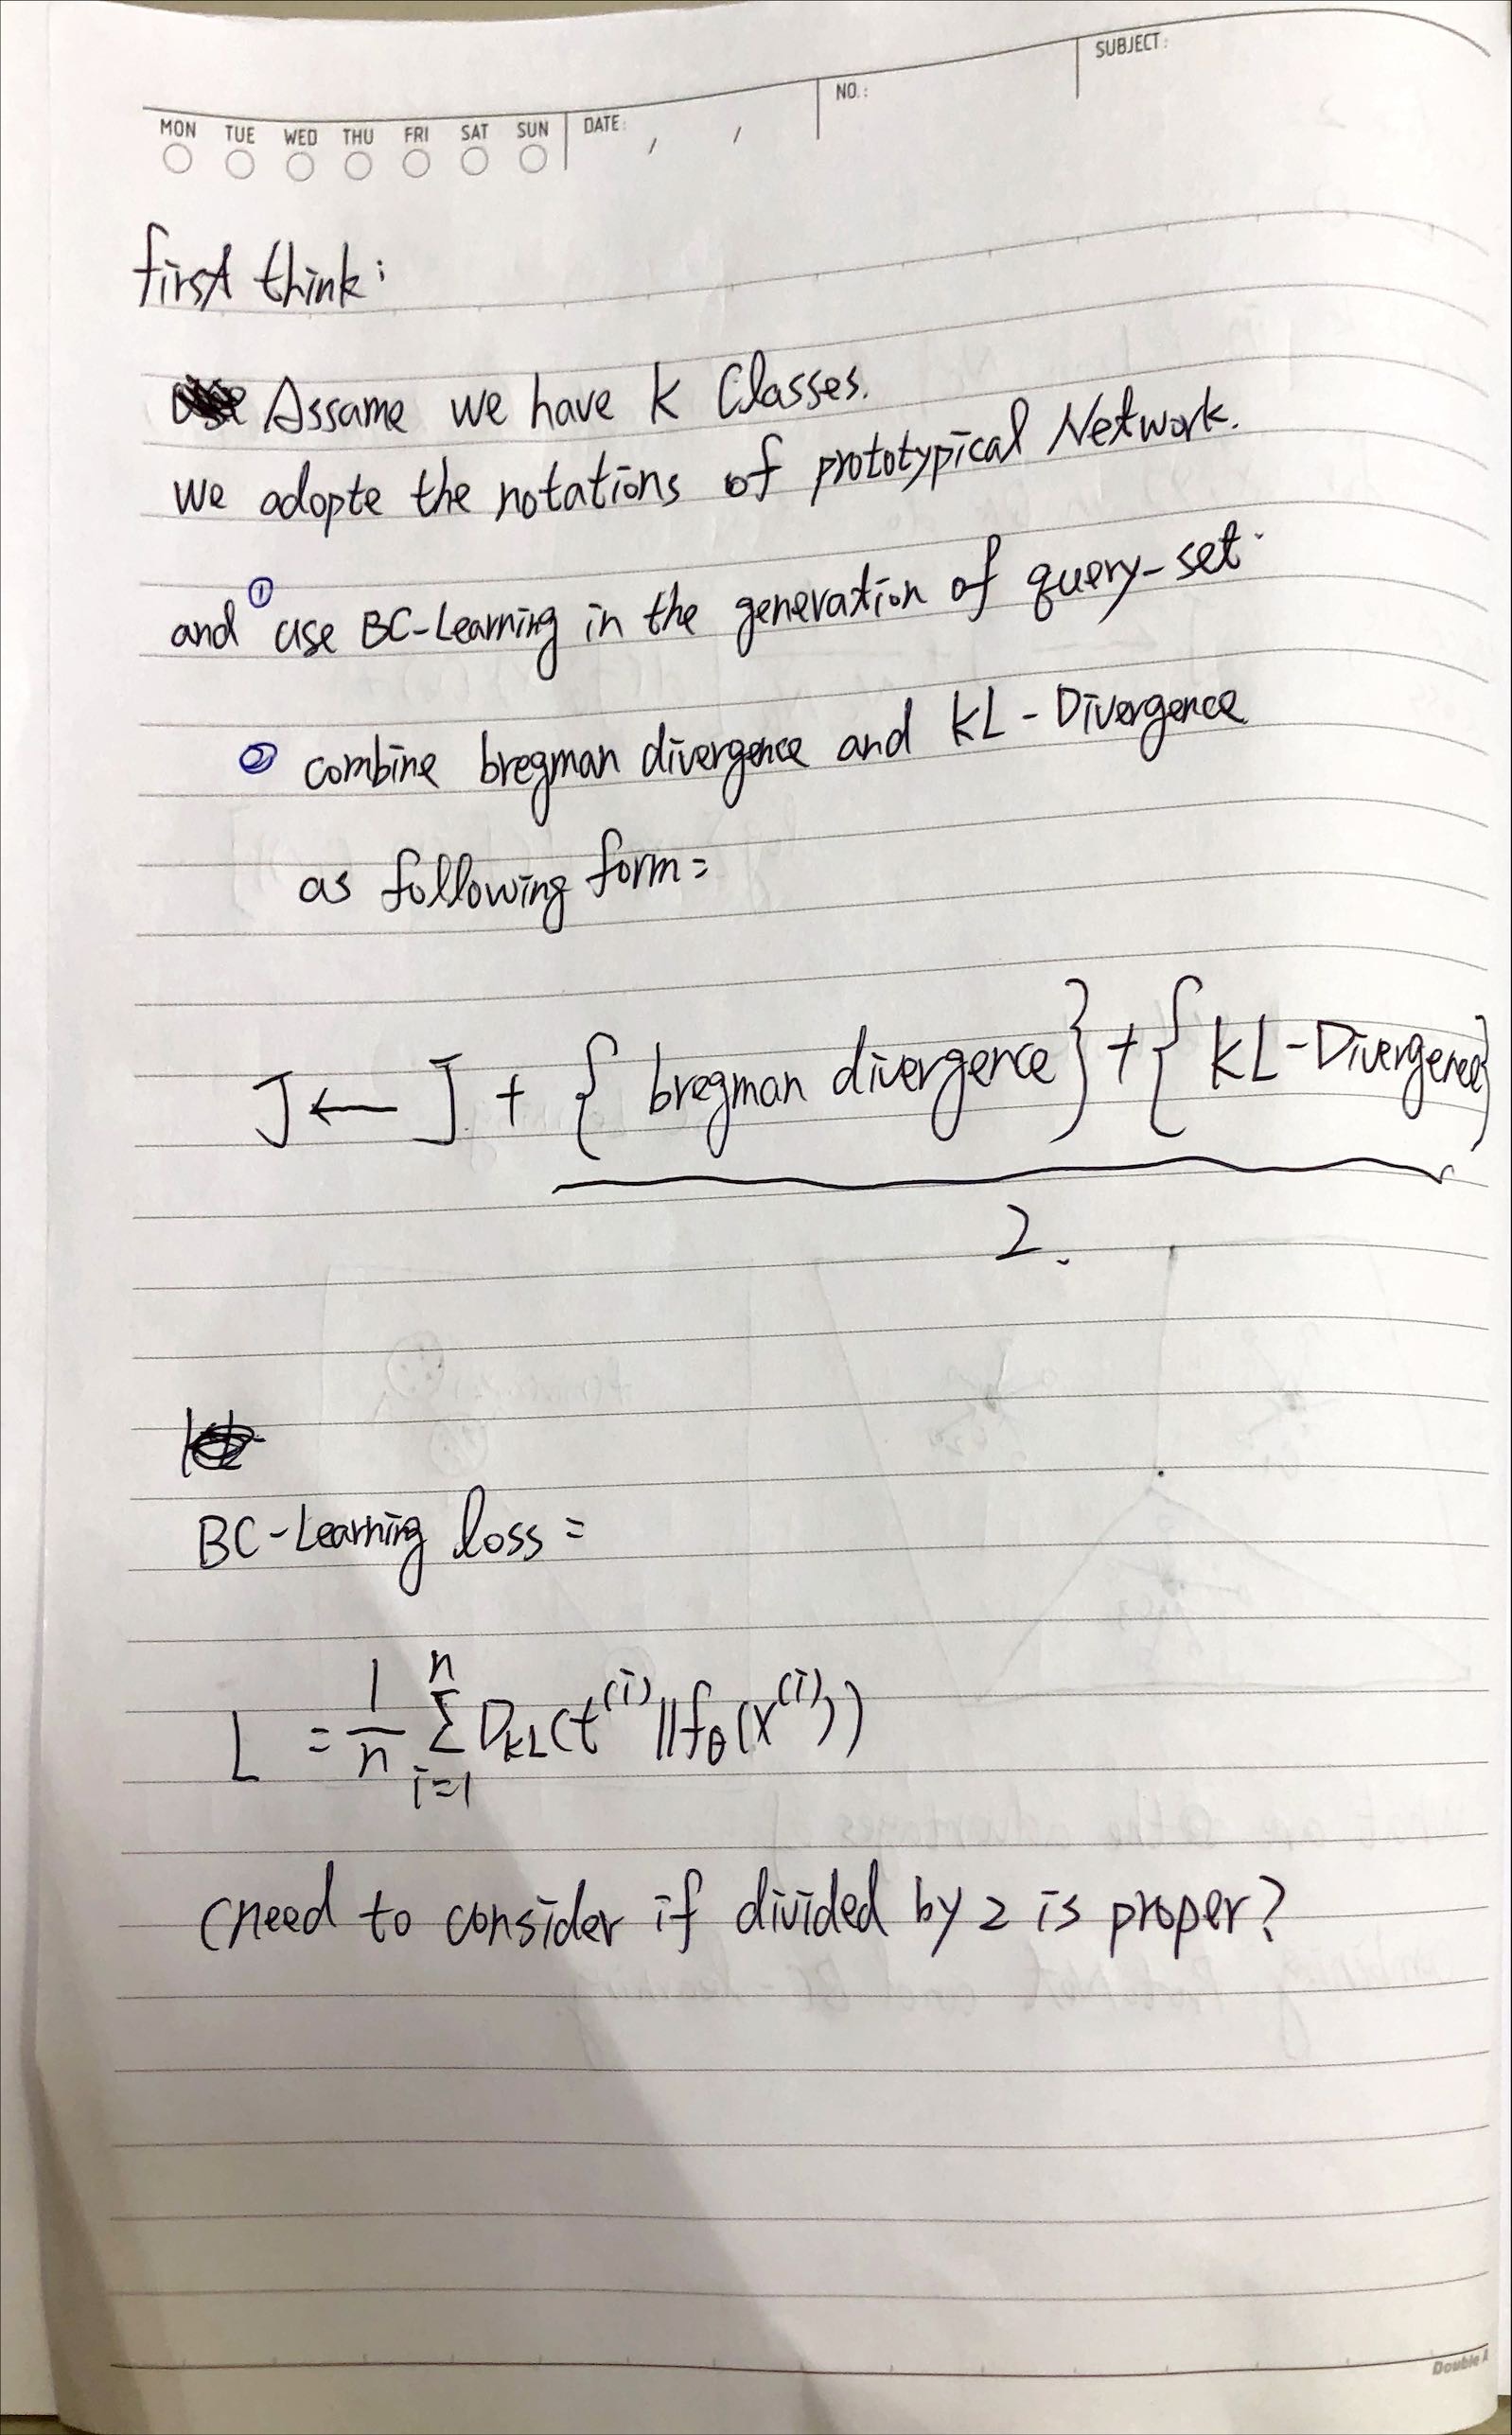 SUBJECT:
MON TUE WED THU FRI SAT SUN DATE: / / NO.:
first think:
Assame we have k Classes.
we adopte the notations of prototypical Network.
and ① use BC-Learning in the generation of query-set.
② combine bregman divergence and KL-Divergence
as following form:
J ← J + { bregman divergence } + { KL-Divergence }
2.
BC-Learning loss =
L = 1/n Σ_{i=1}^{n} D_{KL}(t^{(i)} || f_θ(x^{(i)}))
(need to consider if divided by 2 is proper?
Double A